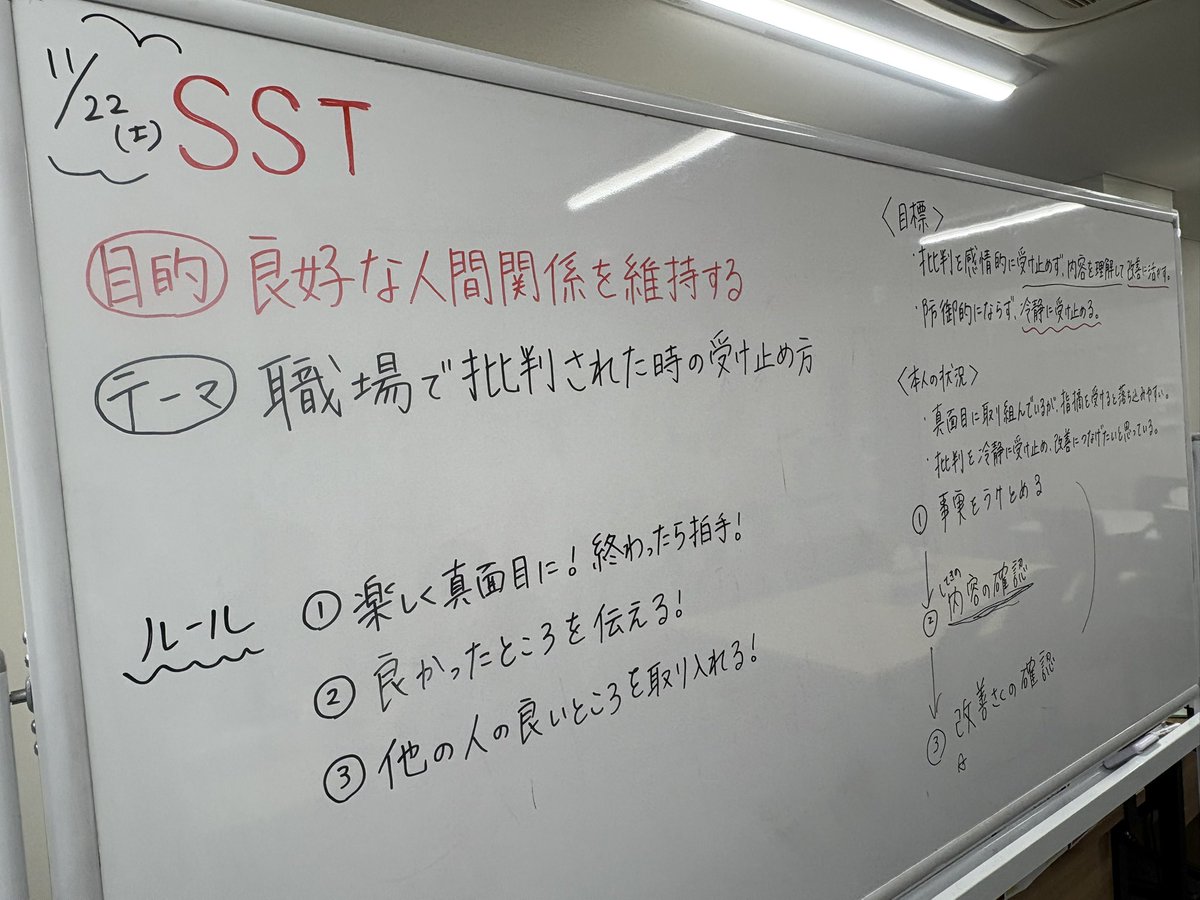 11/22(土) SST
目的 良好な人間関係を維持する
テーマ 職場で批判された時の受け止め方
ルール
① 楽しく真面目に！終わったら拍手！
② 良かったところを伝える！
③ 他の人の良いところを取り入れる！
〈目標〉
・批判を感情的に受け止めず、内容を理解して改善に活かす。
・防御的にならず、冷静に受け止める。
〈本人の状況〉
・真面目に取り組んでいるが、指摘を受けると落ち込みやすい。
・批判を冷静に受け止め、改善につなげたいと思っている。
① 事実をうけとめる
してきの
② 内容の確認
③ 改善さくの確認